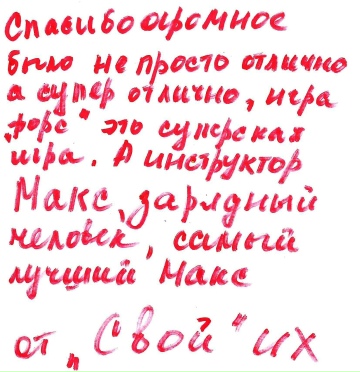 Спасибо огромное
было не просто отлично
а супер отлично, игра
„форс" это суперская
игра. А инструктор
Макс, зарядный
человек, самый
лучший Макс
от „Свой" их